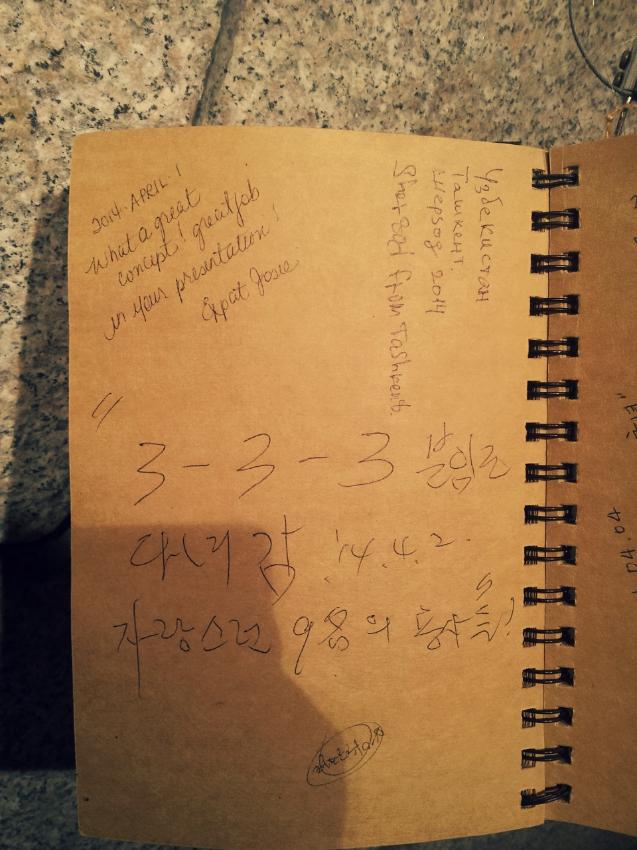 2014-APRIL!
What a great
concept! great job
in your presentation!
Expat Josie
Узбекистан
Ташкент.
Шерзод 2014
Sherzod from Tashkent.
"3-3-3
다녀감 '14.4.2.
자랑스런 98용의 용사들!"
04.04